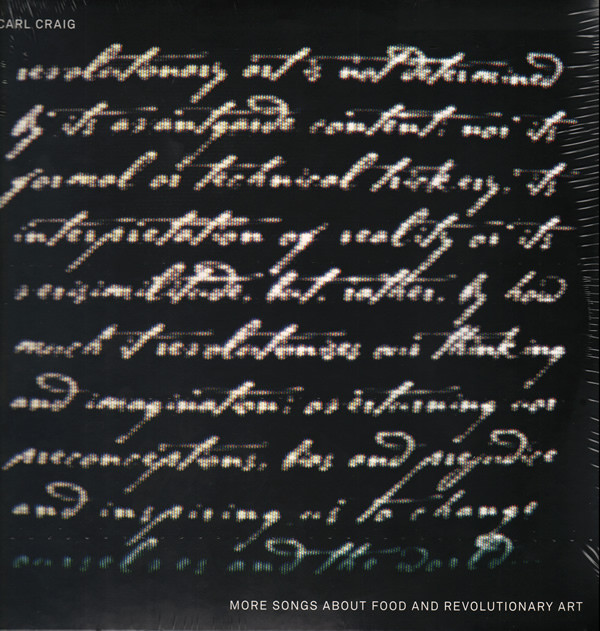 CARL CRAIG
revolutionary art is not determined
by its avantgarde content, nor its
formal or technical trickery, its
interpretation of reality or its
verisimilitude, but, rather, by how
much it revolutionises our thinking
and imagination; overturning our
preconceptions, bias and prejudice
and inspiring us to change
ourselves and the world
MORE SONGS ABOUT FOOD AND REVOLUTIONARY ART